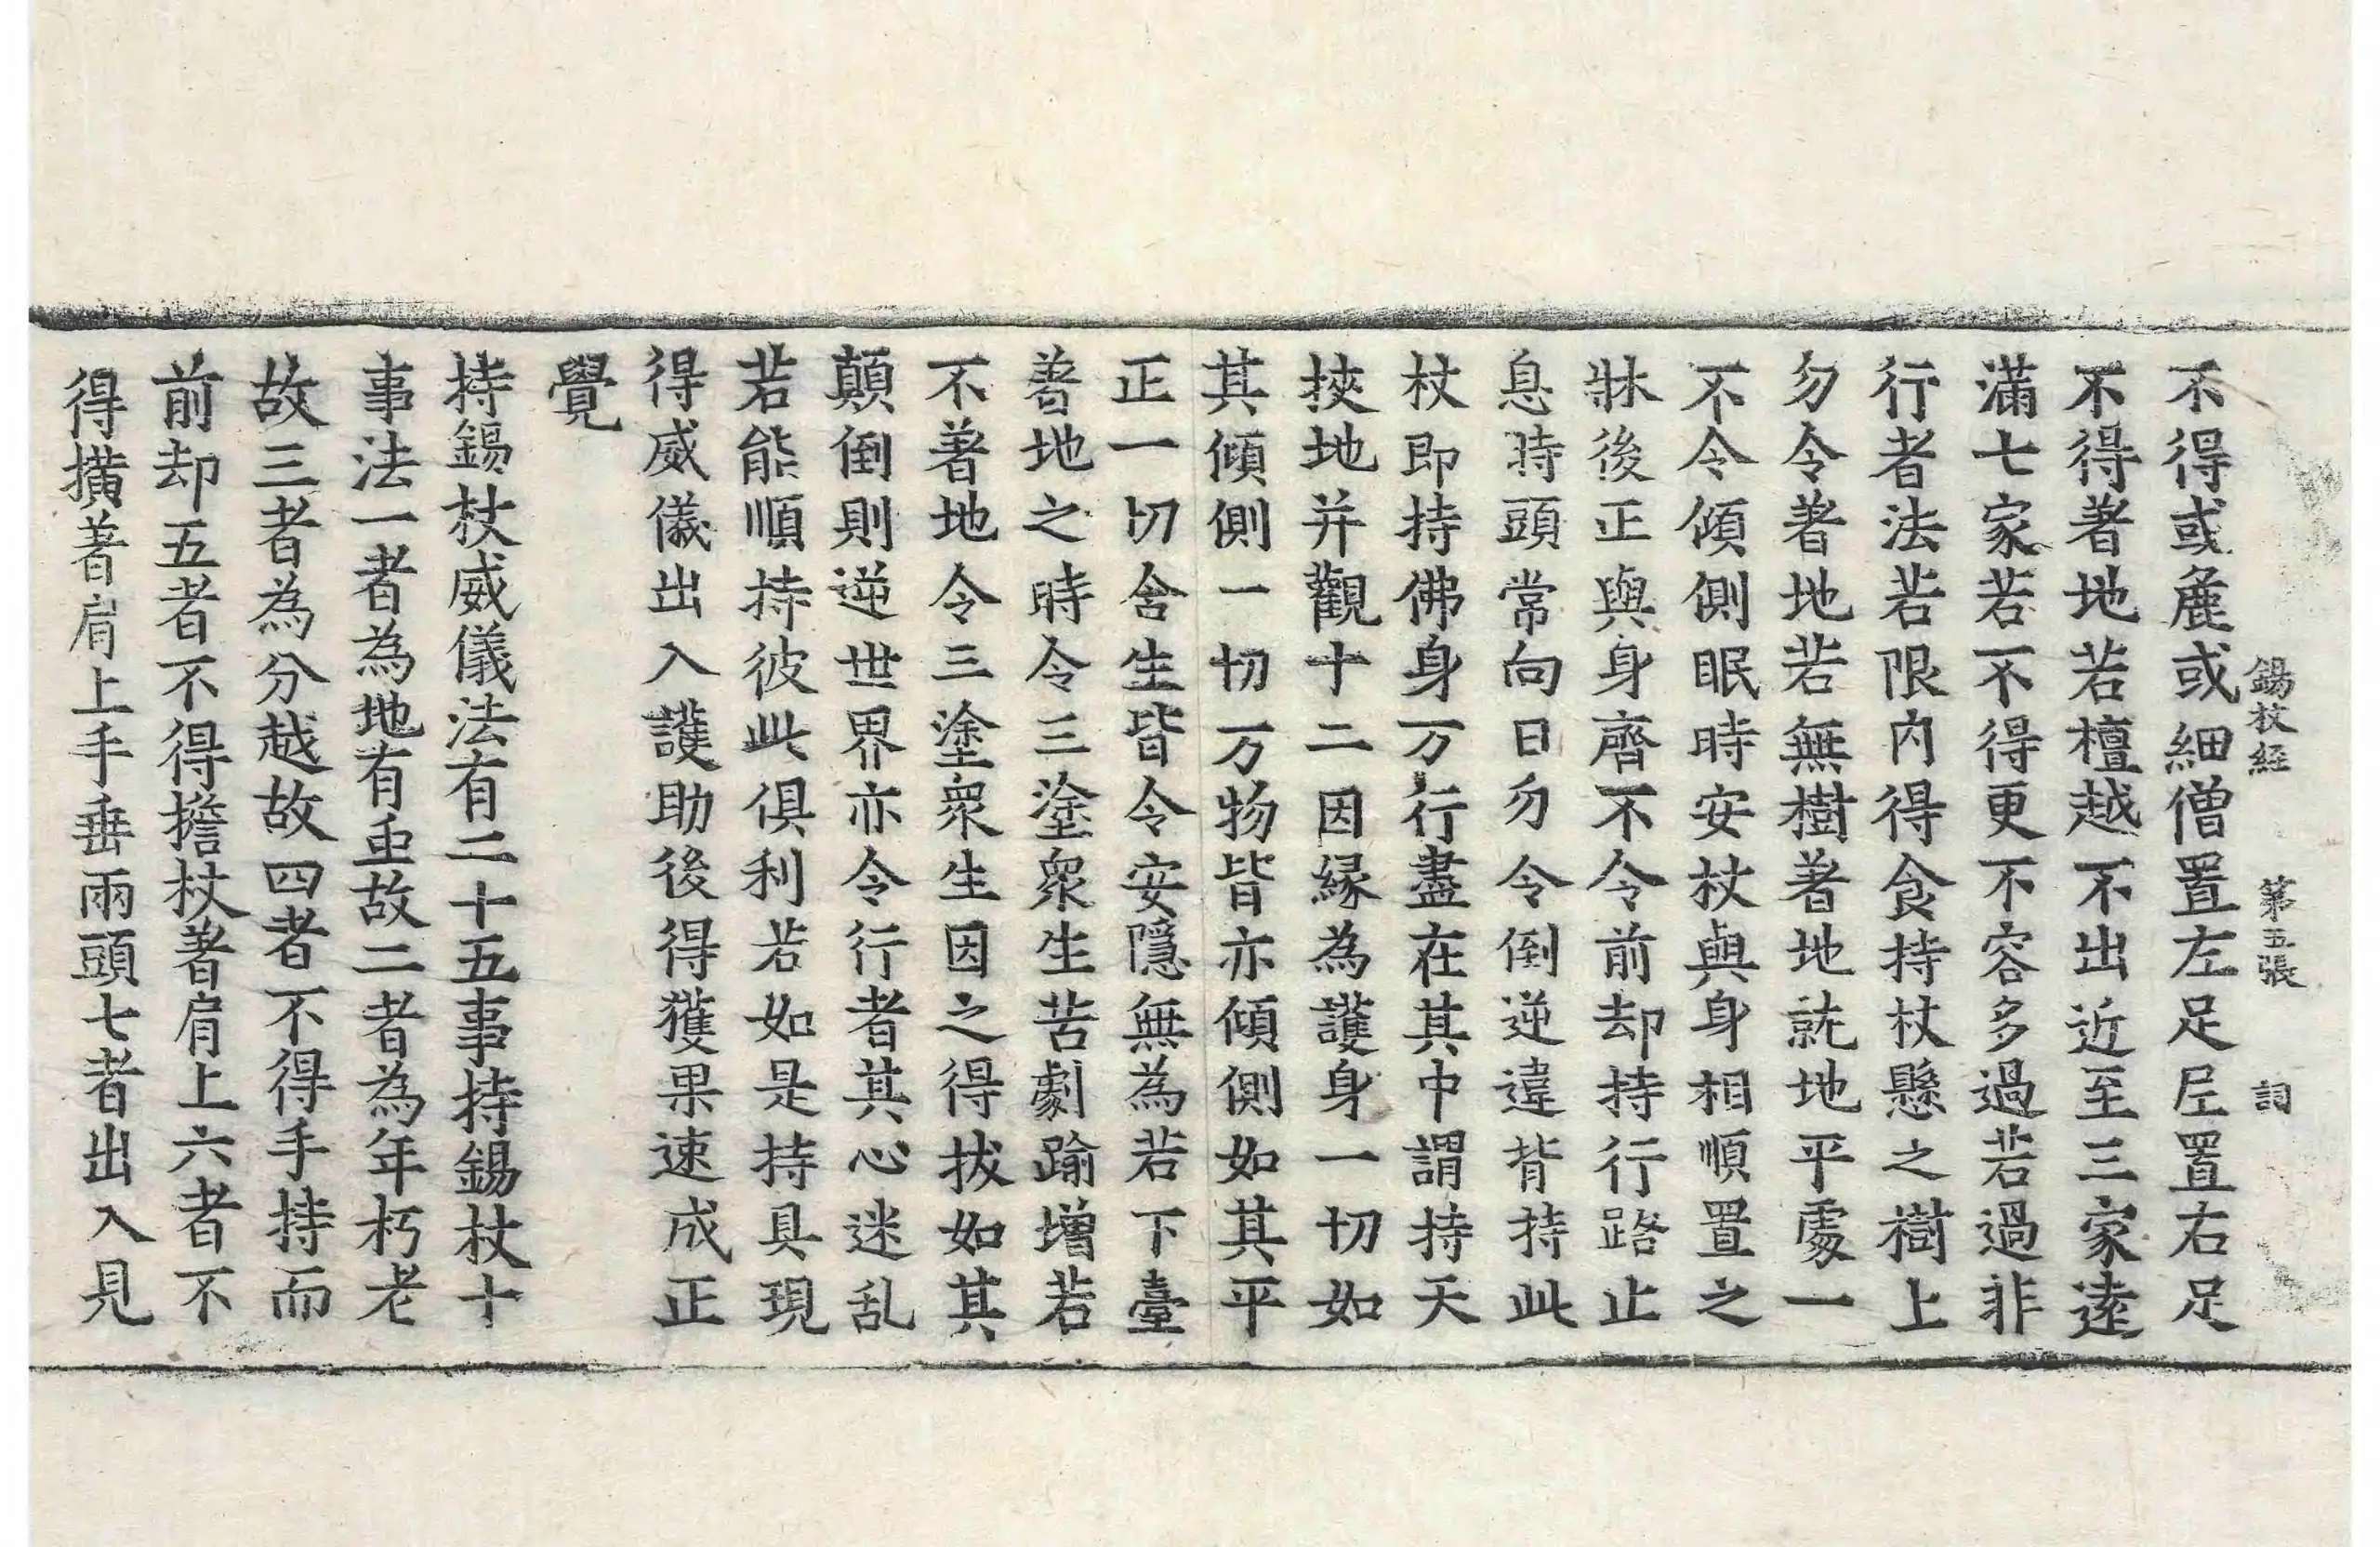 錫杖経 第五張 詞
不得或麁或細僧置左足㞐置右足
不得著地若檀越不出近至三家遠
滿七家若不得更不容多過若過非
行者法若限内得食持杖懸之樹上
勿令著地若無樹著地就地平處一
不令傾側眠時安杖與身相順置之
牀後正與身齊不令前却持行路止
息時頭常向日勿令倒逆違背持此
杖即持佛身万行盡在其中謂持天
挾地并觀十二因縁為護身一切如
其傾側一切万物皆亦傾側如其平
正一切舍生皆令安隱無為若下臺
著地之時令三塗衆生苦劇踰增若
不著地令三塗衆生因之得拔如其
顛倒則逆世界亦令行者其心迷乱
若能順持彼此俱利若如是持具現
得威儀出入護助後得獲果速成正
覺
持錫杖威儀法有二十五事持錫杖十
事法一者為地有虫故二者為年朽老
故三者為分越故四者不得手持而
前却五者不得擔杖著肩上六者不
得撗著肩上手垂兩頭七者出入見